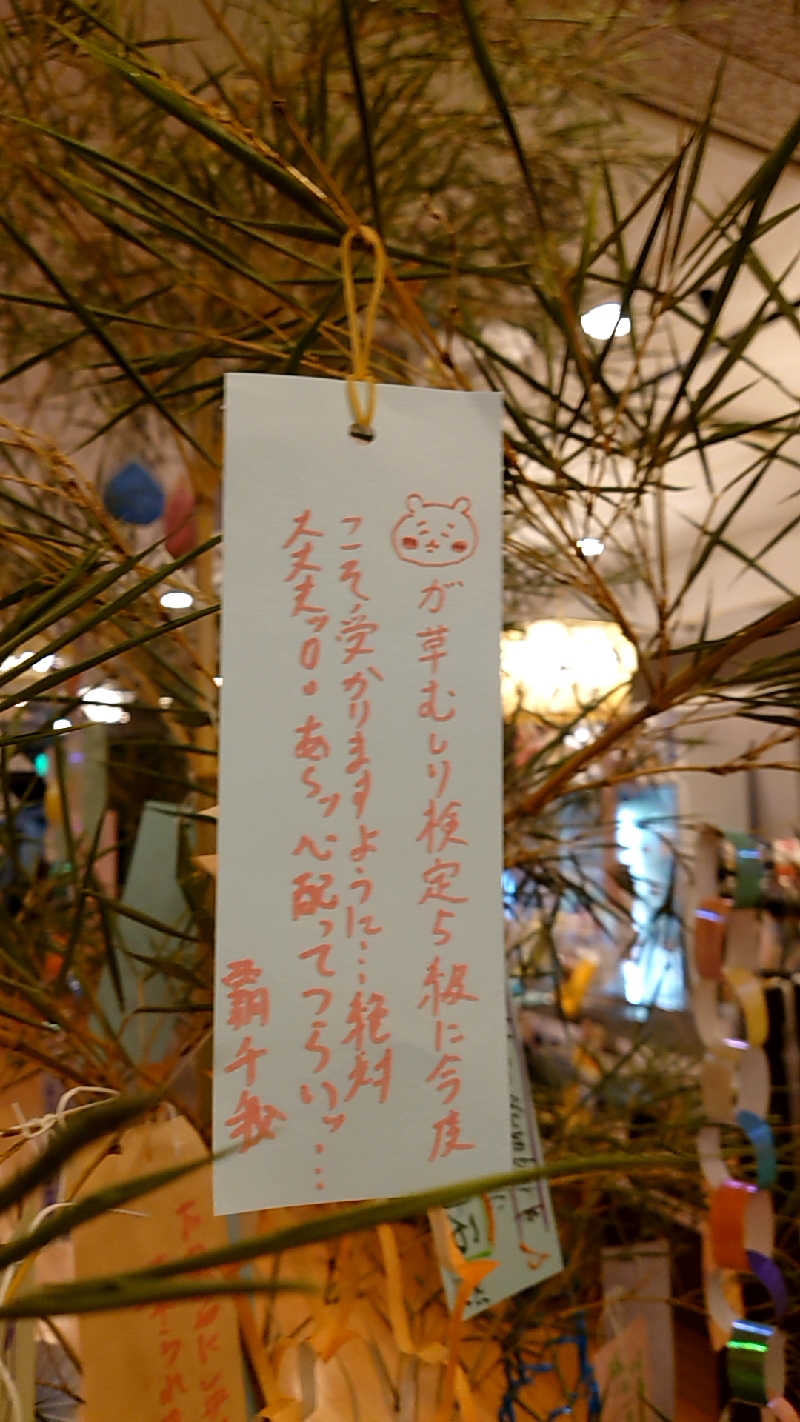 が草むしり検定5級に今度
こそ受かりますように…絶対
大丈夫ッ!!あ〜ッ心配ってつらいッ…
覇千我